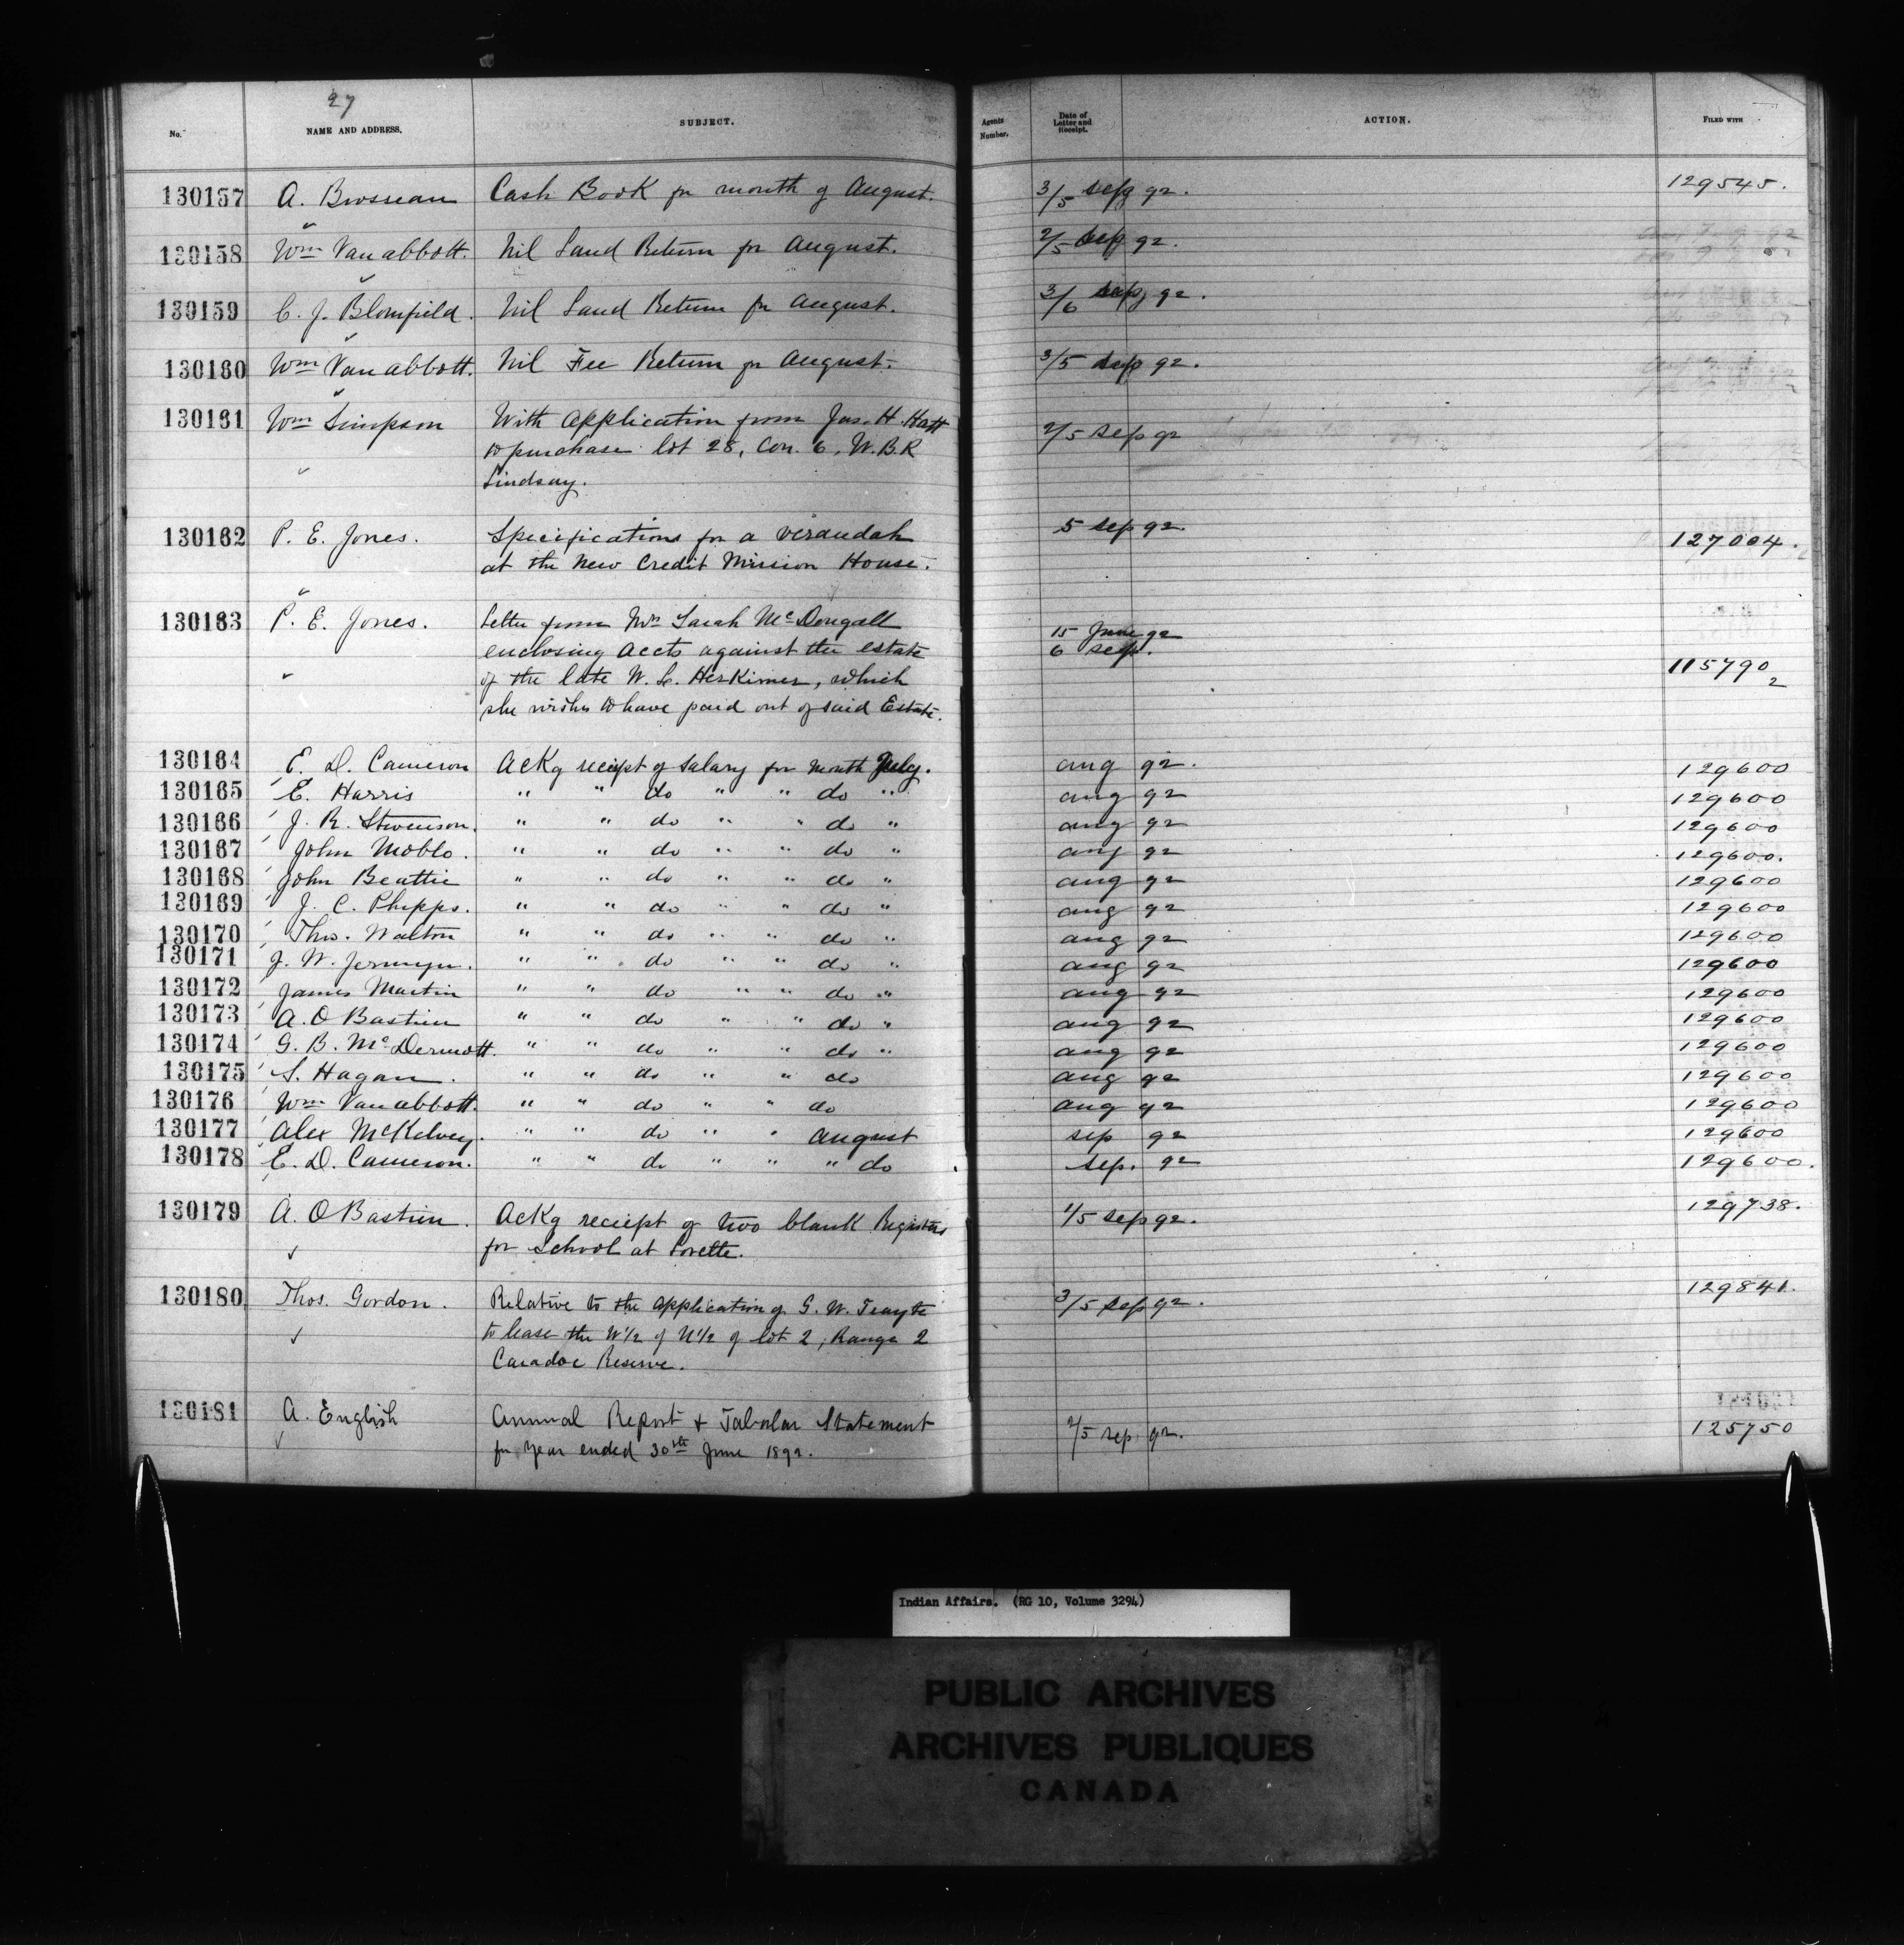 27
No. NAME AND ADDRESS. SUBJECT. Agents Number. Date of Letter and Receipt. ACTION. FILED WITH
130157 A. Brosseau Cash Book for month of August. 3/5 sep 92. 129545.
130158 Wm Van abbott. Nil Land Return for August. 2/5 sep 92.
130159 C. J. Blomfield. Nil Land Return for August. 3/6 sep 92.
130160 Wm Van abbott. Nil Fee Return for August. 3/5 sep 92.
130161 Wm Simpson With application from Jas. H. Hatt 2/5 sep 92
to purchase lot 28, Con. 6, W.B.R
Lindsay.
130162 P. E. Jones. Specifications for a verandah 5 sep 92. 127004.
at the New Credit Mission House.
130163 P. E. Jones. Letter from Mrs Sarah McDougall 15 June 92
enclosing accts against the estate 6 sep.
of the late W. L. Herkimer, which 115790 2
she wishes to have paid out of said Estate.
130164 E. D. Cameron ackg receipt of salary for month July. aug 92. 129600
130165 E. Harris " " do " " do " aug 92 129600
130166 J. R. Stevenson. " " do " " do " aug 92 129600
130167 John Moblo. " " do " " do " aug 92 129600.
130168 John Beattie " " do " " do " aug 92 129600
130169 J. C. Phipps. " " do " " do " aug 92 129600
130170 Thos. Walton " " do " " do " aug 92 129600
130171 J. W. Jermyn. " " do " " do " aug 92 129600
130172 James Martin " " do " " do " aug 92 129600
130173 A. O Bastien " " do " " do " aug 92 129600
130174 G. B. McDermott. " " do " " do " aug 92 129600
130175 S. Hagan. " " do " " do aug 92 129600
130176 Wm Van abbott. " " do " " do aug 92 129600
130177 Alex McKelvey. " " do " " august sep 92 129600
130178 E. D. Cameron. " " do " " " do sep. 92 129600.
130179 A. O Bastien. ackg receipt of two blank Registers 1/5 sep 92. 129738.
for School at Lorette.
130180 Thos. Gordon. Relative to the application of G. W. 3/5 sep 92. 129841.
to lease the W 1/2 of N 1/2 of lot 2, Range 2
Caradoc Reserve.
130181 A. English Annual Report + Tabular Statement 2/5 sep 92. 125750
for year ended 30th June 1892.
Indian Affairs. (RG 10, Volume 3294)
PUBLIC ARCHIVES
ARCHIVES PUBLIQUES
CANADA